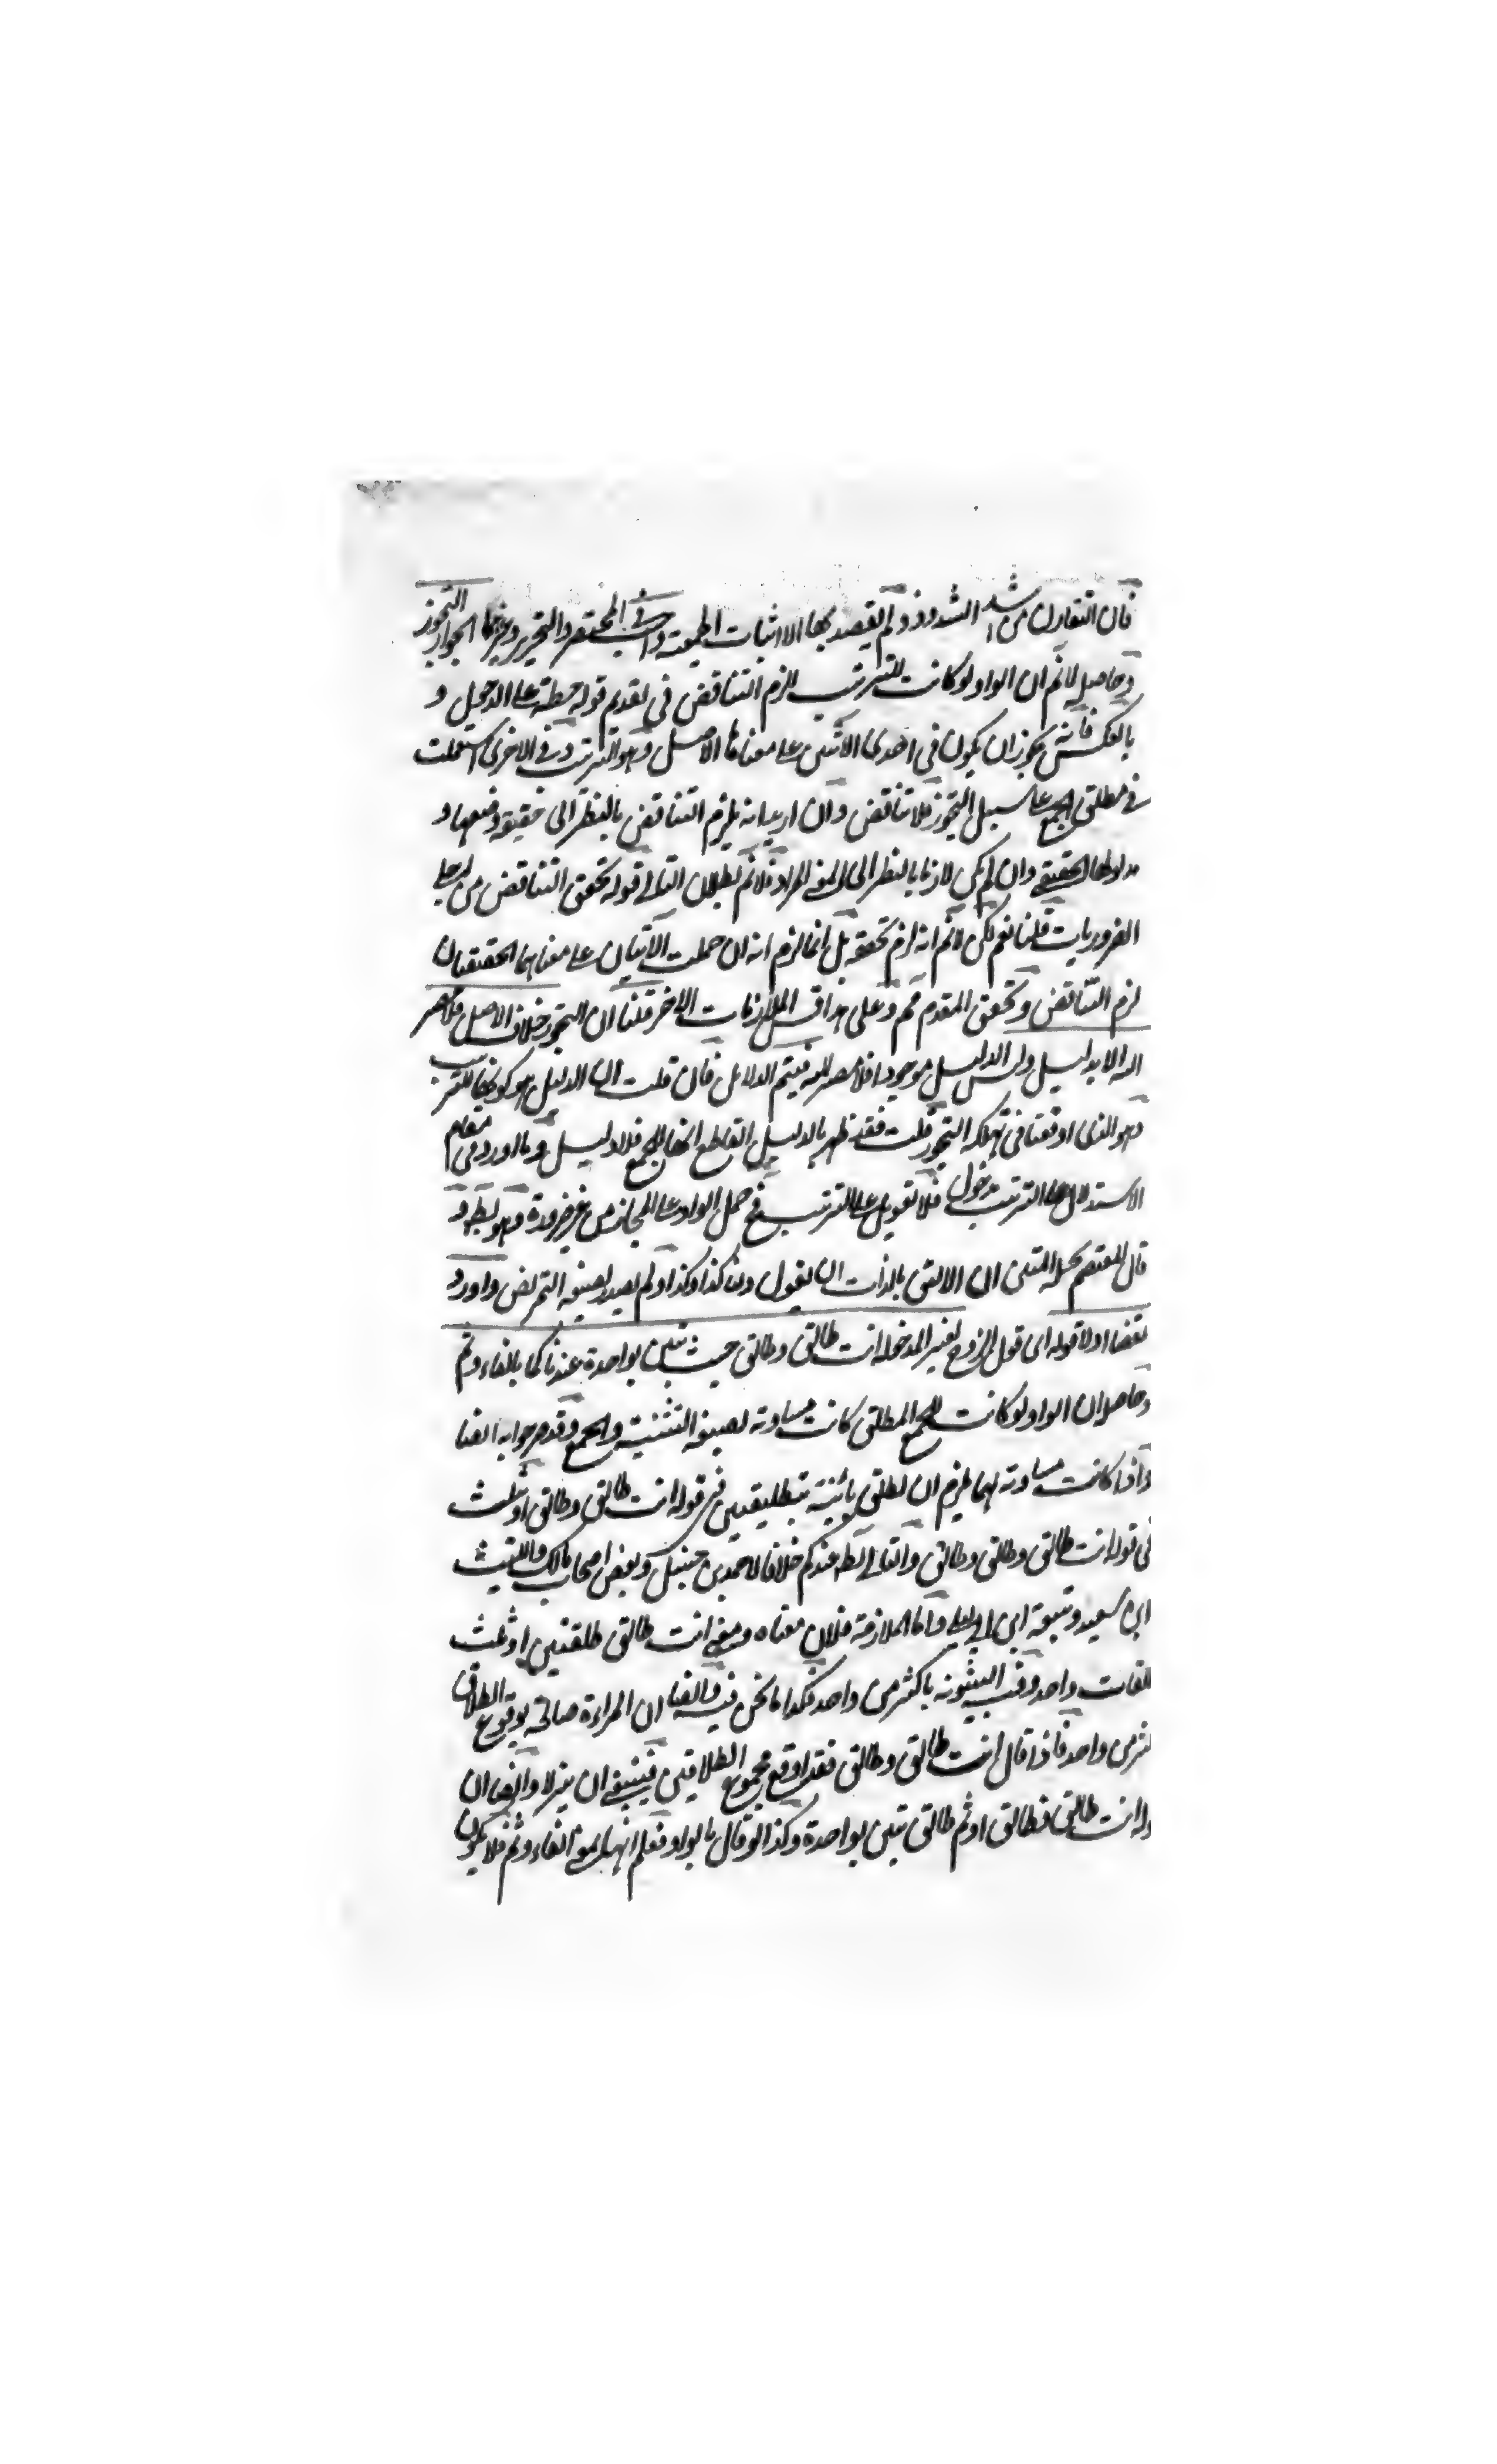 فان التقارن من اشد الشذوذ ولم يقصد بها الا اثبات المعية واجيب في المختصر والتحرير وغيرهما بجواز التجوز
وحاصله لانم ان الواو لو كانت للترتيب للزم التناقض في تقديم قوله حطة على الدخول و
بالعكس فانه يجوز ان يكون في احدى الآيتين على معناها الاصلى وهو الترتيب وفي الاخرى استعملت
في مطلق الجمع على سبيل التجوز فلا تناقض وان اريد انه يلزم التناقض بالنظر الى حقيقة وضعها و
مدلولها الحقيقي وان لم يكن لازما بالنظر الى المعنى المراد فلانم بطلان التالي قوله تحقق التناقض من
الضروريات قلنا نعم لكن لانم انه لزم تحققه بل انما لزم انه ان حملت الآيتان على معناهما الحقيقيان
لزم التناقض وتحقق المقدم مم وعلى هذا قس الملازمات الاخر قلنا ان التجوز خلاف الاصل فلا يصير
اليه الا بدليل وليس الدليل موجودا فلا مصير اليه فيتم الدلائل فان قلت ان الدليل هو كونها للترتيب
وهو الذي اوقعنا في تهلكة التجوز قلت فقد ظهر بالدليل القاطع انها للجمع فلا دليل وما اورد في مقام
الاستدلال على الترتيب مدخول فلا تعويل على الترتيب في حمل الواو على المجاز من غير ضرورة وهو بط و
قال المعتصم بحبل المتين ان الاليق بالذات ان يقول ومنا كذا وكذا ولم يصدر بصيغة التمريض واورد
نقضا اولا قوله اى قول الزوج لغير المدخولة انت طالق وطالق حيث تبين بواحدة عندنا كما بالفاء وثم
وحاصله ان الواو لو كانت للجمع المطلق كانت مساوية لصيغة التثنية والجمع وقد مر جوابه ايضا
واذا كانت مساوية لهما يلزم ان تطلق بائنة بتطليقتين في قوله انت طالق وطالق او ثلث
في قوله انت طالق وطالق وطالق والتالي بط عندكم خلافا لاحمد بن حنبل وبعض اصحاب مالك والليث
ابن سعيد وتبعه ابن ابي ليلى واما الملازمة فلان معناه ومعنى انت طالق طلقتين او ثلث
طلقات واحد وفيه البينونة باكثر من واحد فكذا ما نحن فيه وايضا ان المراءة صالحة بوقوع الطلاق
اكثر من واحد فاذا قال انت طالق وطالق فقد اوقع مجموع الطلاقين فينبغي ان ينزلا وايضا ان
قوله انت طالق فطالق او ثم طالق تبين بواحدة وكذا لو قال بالواو فعلم انها بمعنى الفاء وثم فلا يكون